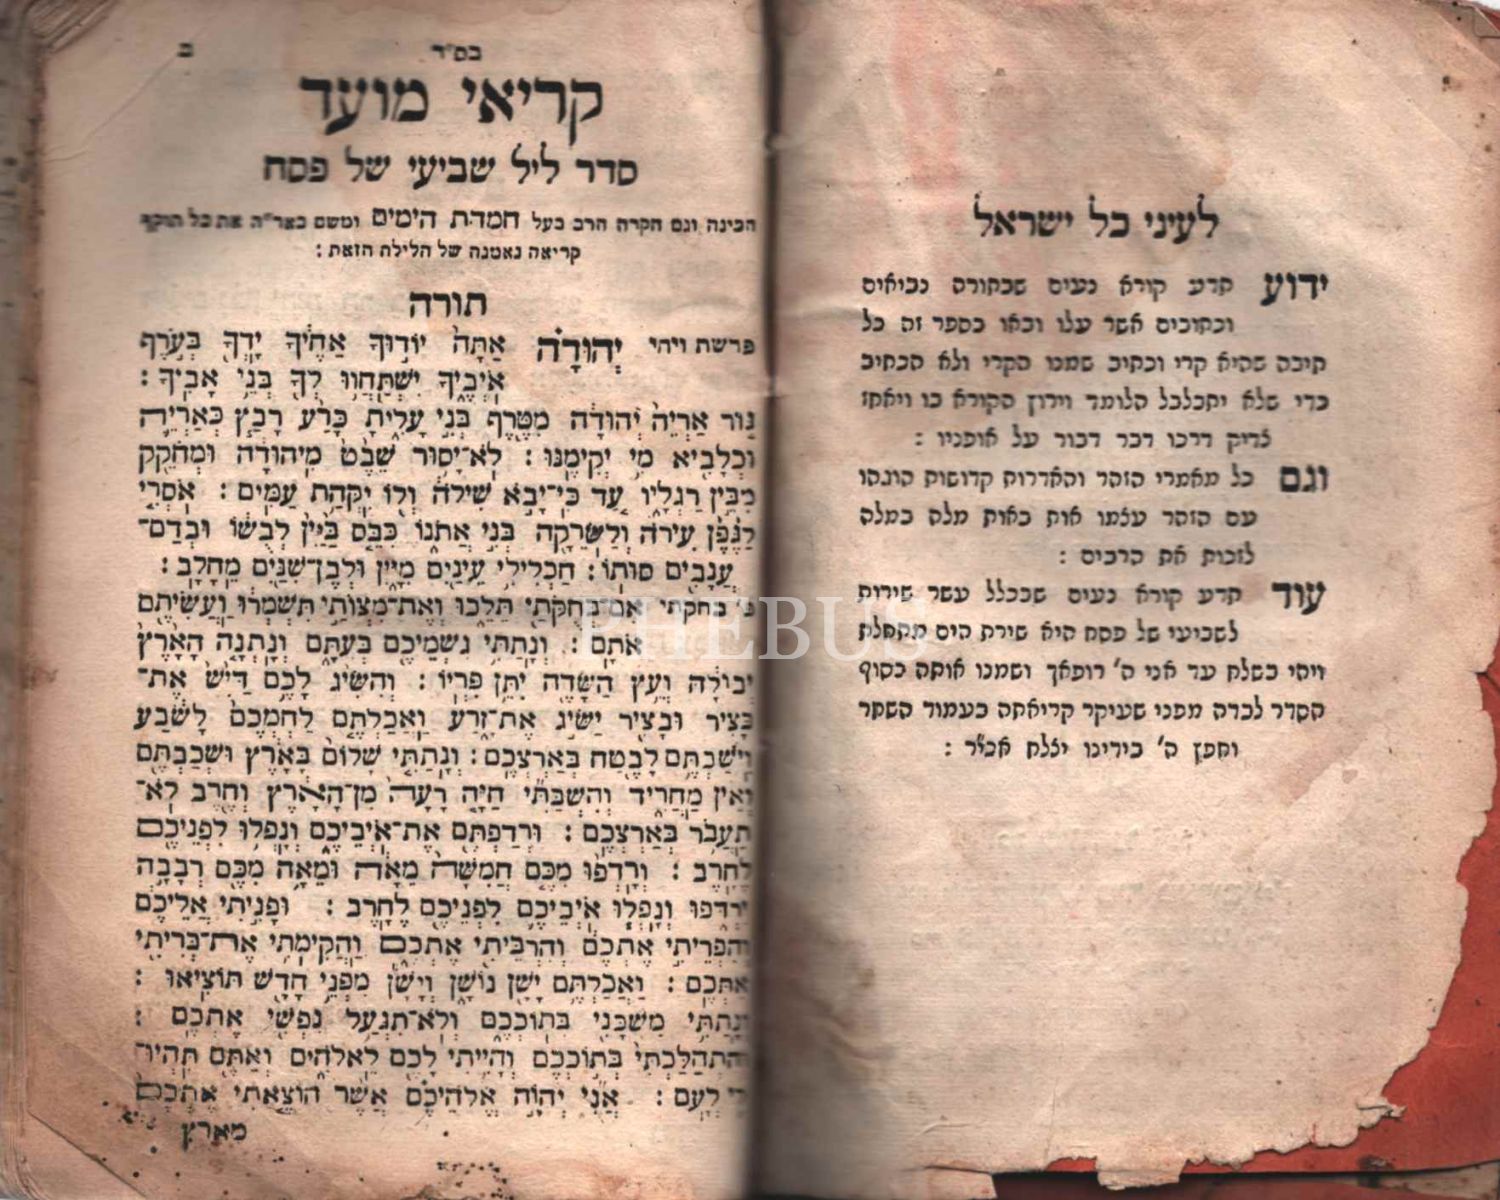 לעיני כל ישראל
ידוע תדע קורא נעים שבתורה נביאים
וכתובים אשר עלו ובאו בספר זה כל
תיבה שהיא קרי וכתיב שמנו הקרי ולא הכתיב
כדי שלא יתבלבל הלומד וירון הקורא בו ויאחז
צדיק דרכו דבר דבור על אופניו :
וגם כל מאמרי הזהר והאדרות קדושות הוגהו
עם הזהר עצמו אות באות מלה במלה
לזכות את הרבים :
עוד תדע קורא נעים שבכלל עשר שירות
לשביעי של פסח היא שירת הים מתחלת
ויהי בשלח עד אני ה' רופאך ושמנו אותה בסוף
הסדר לבדה מפני שעיקר קריאתה בעמוד השחר
וחפץ ה' בידינו יצלח אכי"ר :
ב
בס"ד
קריאי מועד
סדר ליל שביעי של פסח
הכינה וגם חקרה הרב בעל חמדת הימים ומשם בארה את כל תוקף
קריאה נאמנה של הלילה הזאת :
תורה
פרשת ויחי יְהוּדָה אַתָּה יוֹדוּךָ אַחֶיךָ יָדְךָ בְּעֹרֶף
אֹיְבֶיךָ יִשְׁתַּחֲווּ לְךָ בְּנֵי אָבִיךָ :
גּוּר אַרְיֵה יְהוּדָה מִטֶּרֶף בְּנִי עָלִיתָ כָּרַע רָבַץ כְּאַרְיֵה
וּכְלָבִיא מִי יְקִימֶנּוּ : לֹא־יָסוּר שֵׁבֶט מִיהוּדָה וּמְחֹקֵק
מִבֵּין רַגְלָיו עַד כִּי־יָבֹא שִׁילֹה וְלוֹ יִקְּהַת עַמִּים : אֹסְרִי
לַגֶּפֶן עִירֹה וְלַשֹּׂרֵקָה בְּנִי אֲתֹנוֹ כִּבֵּס בַּיַּיִן לְבֻשׁוֹ וּבְדַם־
עֲנָבִים סוּתוֹ : חַכְלִילִי עֵינַיִם מִיָּיִן וּלְבֶן־שִׁנַּיִם מֵחָלָב :
פ' בחקתי אִם־בְּחֻקֹּתַי תֵּלֵכוּ וְאֶת־מִצְוֹתַי תִּשְׁמְרוּ וַעֲשִׂיתֶם
אֹתָם : וְנָתַתִּי גִשְׁמֵיכֶם בְּעִתָּם וְנָתְנָה הָאָרֶץ
יְבוּלָהּ וְעֵץ הַשָּׂדֶה יִתֵּן פִּרְיוֹ : וְהִשִּׂיג לָכֶם דַּיִשׁ אֶת־
בָּצִיר וּבָצִיר יַשִּׂיג אֶת־זָרַע וַאֲכַלְתֶּם לַחְמְכֶם לָשֹׂבַע
וִישַׁבְתֶּם לָבֶטַח בְּאַרְצְכֶם : וְנָתַתִּי שָׁלוֹם בָּאָרֶץ וּשְׁכַבְתֶּם
וְאֵין מַחֲרִיד וְהִשְׁבַּתִּי חַיָּה רָעָה מִן־הָאָרֶץ וְחֶרֶב לֹא־
תַעֲבֹר בְּאַרְצְכֶם : וּרְדַפְתֶּם אֶת־אֹיְבֵיכֶם וְנָפְלוּ לִפְנֵיכֶם
לֶחָרֶב : וְרָדְפוּ מִכֶּם חֲמִשָּׁה מֵאָה וּמֵאָה מִכֶּם רְבָבָה
יִרְדֹּפוּ וְנָפְלוּ אֹיְבֵיכֶם לִפְנֵיכֶם לֶחָרֶב : וּפָנִיתִי אֲלֵיכֶם
וְהִפְרֵיתִי אֶתְכֶם וְהִרְבֵּיתִי אֶתְכֶם וַהֲקִימֹתִי אֶת־בְּרִיתִי
אִתְּכֶם : וַאֲכַלְתֶּם יָשָׁן נוֹשָׁן וְיָשָׁן מִפְּנֵי חָדָשׁ תּוֹצִיאוּ :
וְנָתַתִּי מִשְׁכָּנִי בְּתוֹכְכֶם וְלֹא־תִגְעַל נַפְשִׁי אֶתְכֶם :
וְהִתְהַלַּכְתִּי בְּתוֹכְכֶם וְהָיִיתִי לָכֶם לֵאלֹהִים וְאַתֶּם תִּהְיוּ־
לִי לְעָם : אֲנִי יְהוָה אֱלֹהֵיכֶם אֲשֶׁר הוֹצֵאתִי אֶתְכֶם
מארץ
PHEBUS